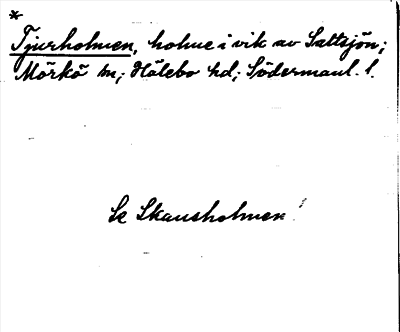 *
Tjurholmen, holme i vik av Saltsjön;
Mörkö sn; Hölebo hd; Södermanl. l.
Se Skansholmen